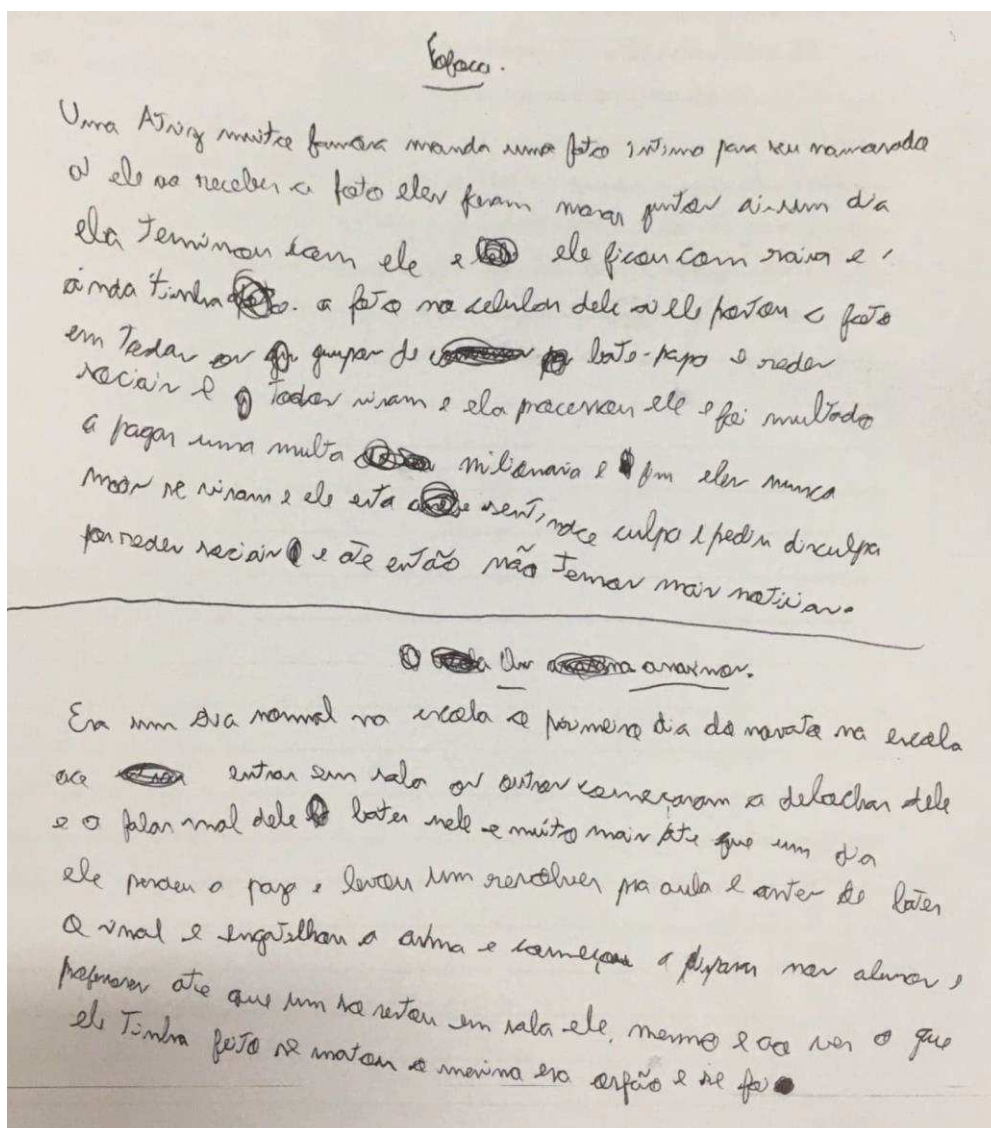 Fofoca.
Uma Atriz muito famosa manda uma foto íntimo para seu namorado
ai ele ao receber a foto eles foram morar juntos ai um dia
ela Terminou com ele e ele ficou com raiva e
ainda tinha a foto no celular dele ai ele postou a foto
em Todos os grupos de bate-papo e redes
sociais e Todos viram e ela processou ele e foi multado
a pagar uma multa milionaria e fim eles nunca
mais se viram e ele esta sentindo culpa e pediu disculpa
por redes sociais e ate então não Temos mais noticias.
O anaximos.
Era um dia normal na escola o primeiro dia do novato na escola
ao entrar em sala os outros começaram a debochar dele
e a falar mal dele bater nele e muito mais ate que um dia
ele perdeu a paz e levou um revolver pra aula e antes de bater
O sinal e engatilhou a arma e começou a disparar nos alunos e
professores ate que um so restou em sala ele mesmo e ao ver o que
ele Tinha feito se matou o menino era orfão e se foi